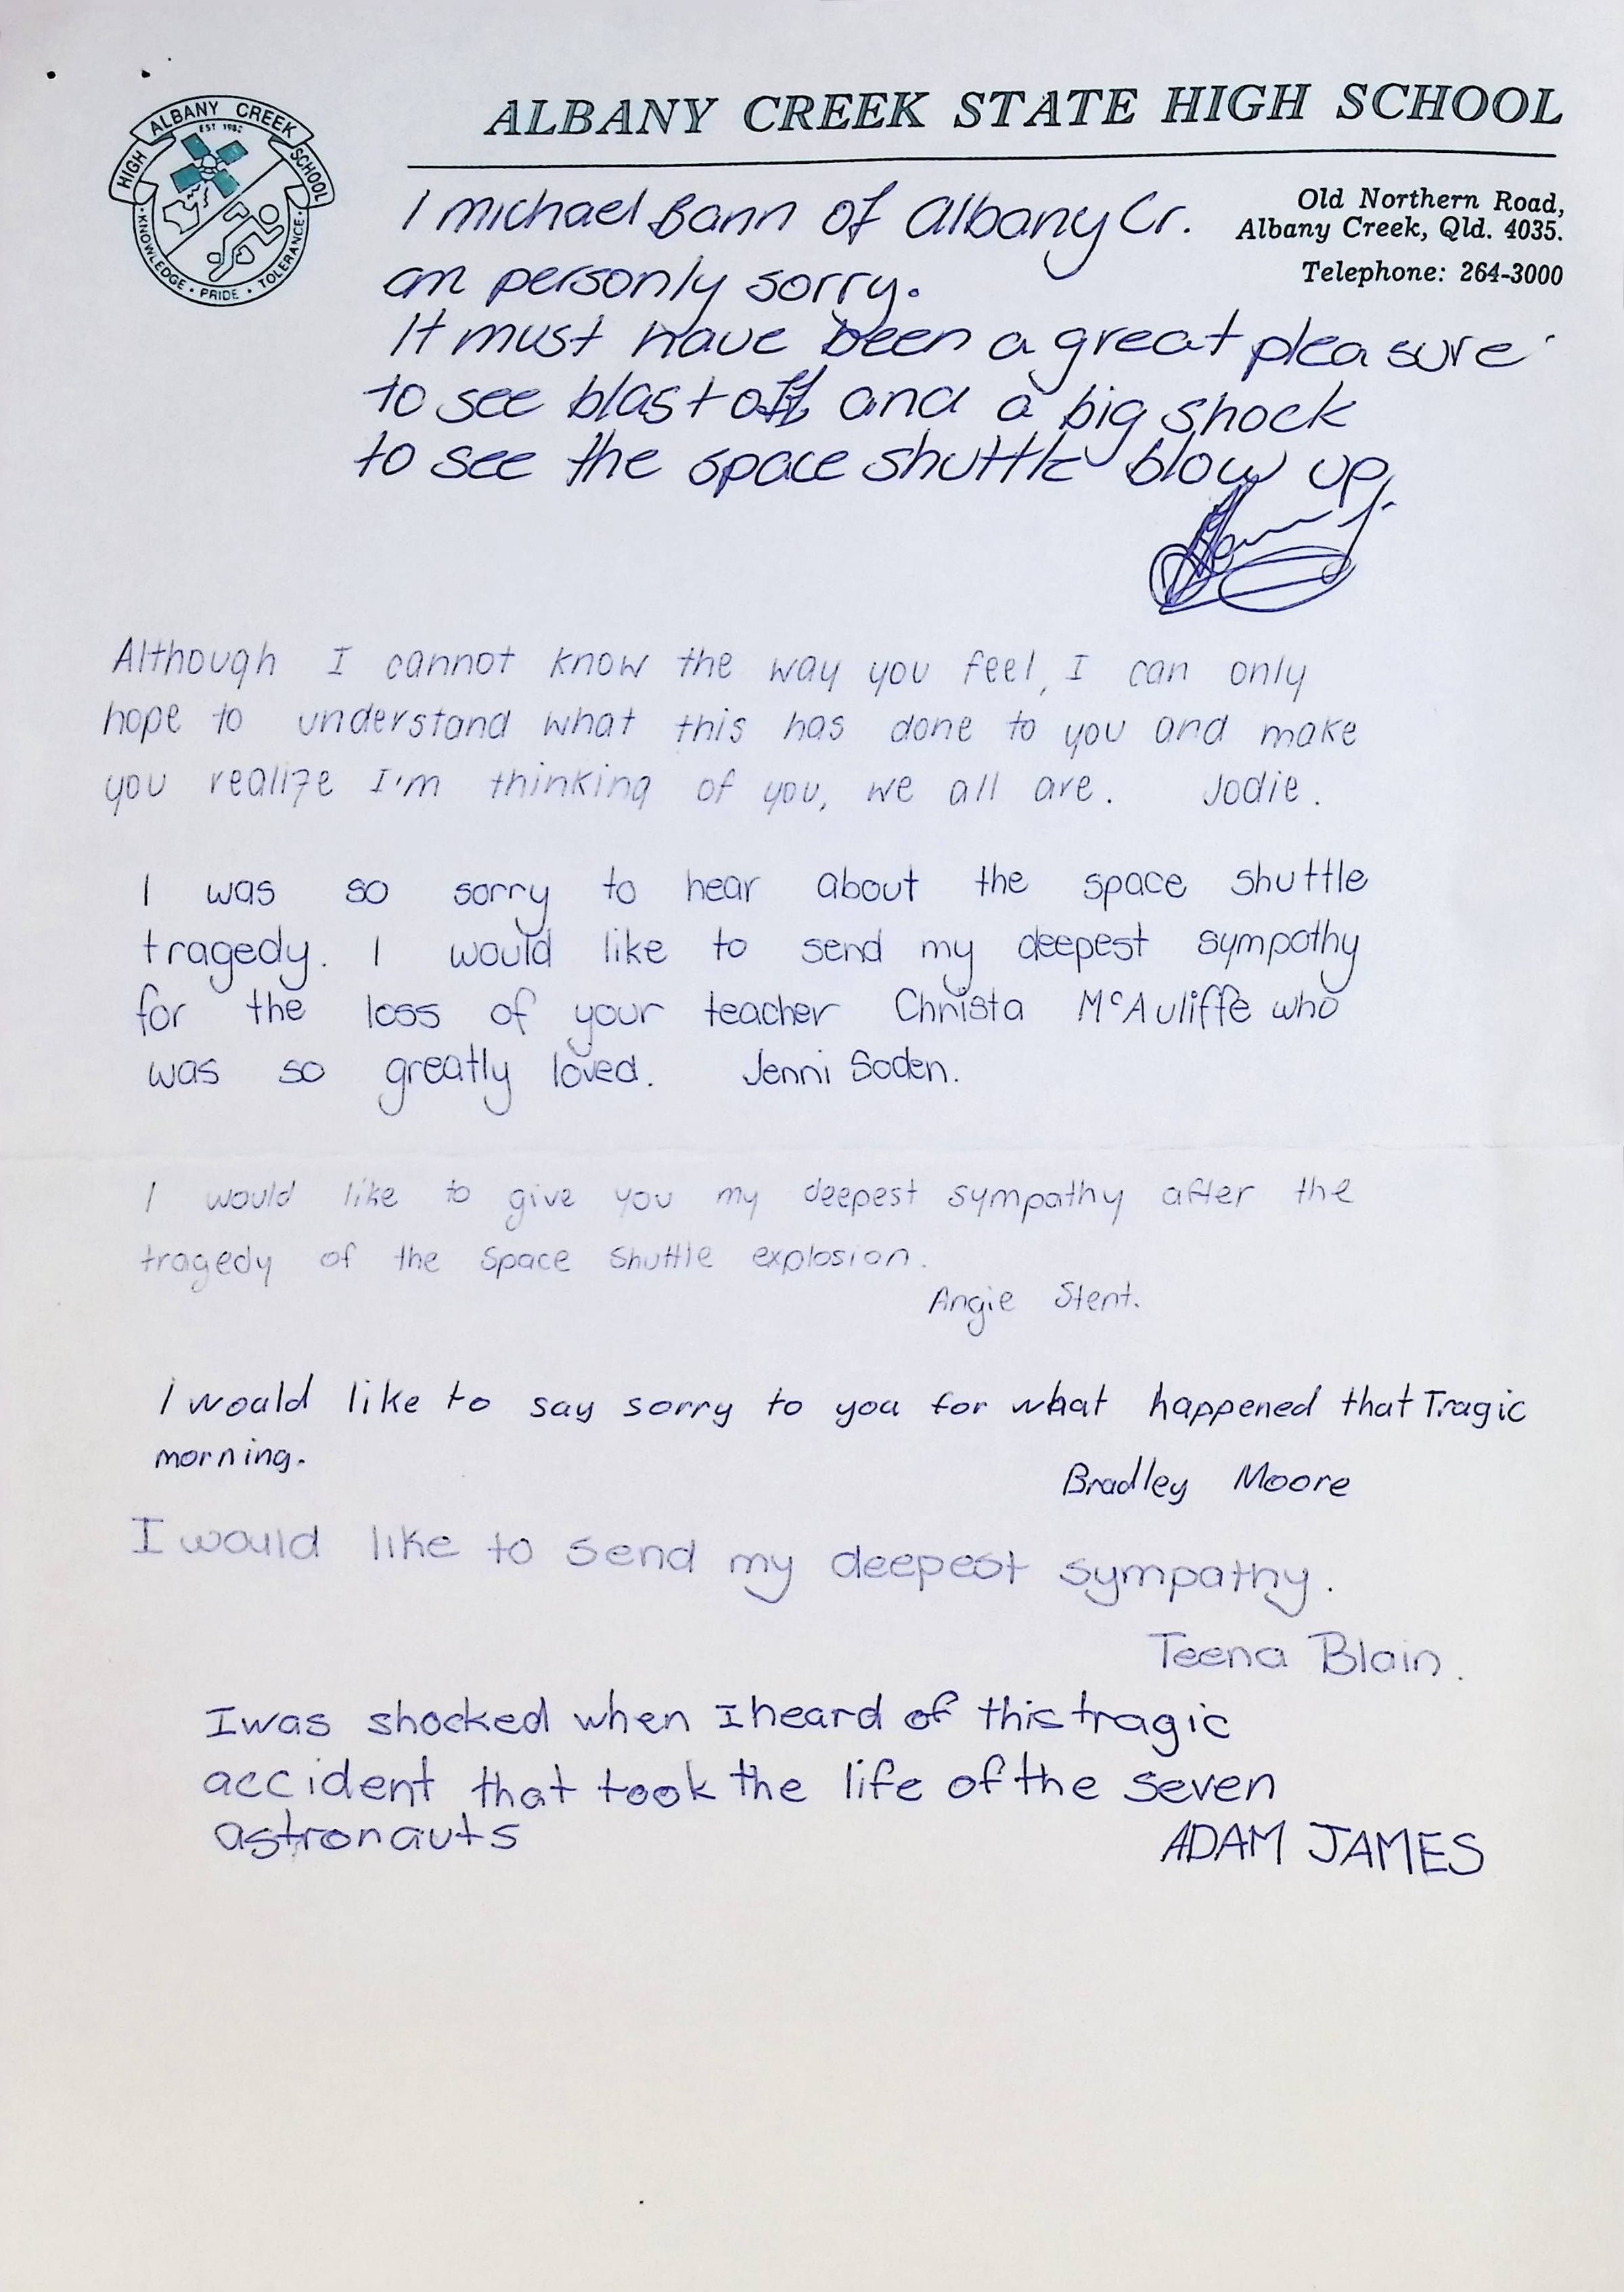 ALBANY CREEK
EST 1982
HIGH SCHOOL
·KNOWLEDGE·PRIDE·TOLERANCE·
ALBANY CREEK STATE HIGH SCHOOL
Old Northern Road,
Albany Creek, Qld. 4035.
Telephone: 264-3000
I michael Bann of Albany Cr.
am personly sorry.
It must have been a great pleasure
to see blast off and a big shock
to see the space shuttle blow up.
Although I cannot know the way you feel, I can only
hope to understand what this has done to you and make
you realize I'm thinking of you, we all are. Jodie.
I was so sorry to hear about the space shuttle
tragedy. I would like to send my deepest sympathy
for the loss of your teacher Christa McAuliffe who
was so greatly loved. Jenni Soden.
I would like to give you my deepest sympathy after the
tragedy of the Space Shuttle explosion.
Angie Stent.
I would like to say sorry to you for what happened that Tragic
morning.
Bradley Moore
I would like to send my deepest sympathy.
Teena Blain.
I was shocked when I heard of this tragic
accident that took the life of the seven
astronauts ADAM JAMES